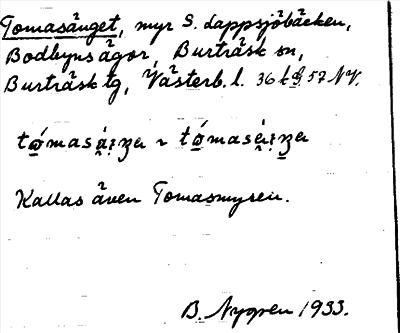 Tomasänget, myr S. Lappsjöbäcken,
Bodbyns ägor, Burträsk sn,
Burträsk tg, Västerb. l. 36 k 57 NV.
Kallas även Tomasmyren.
B. Nygren 1933.